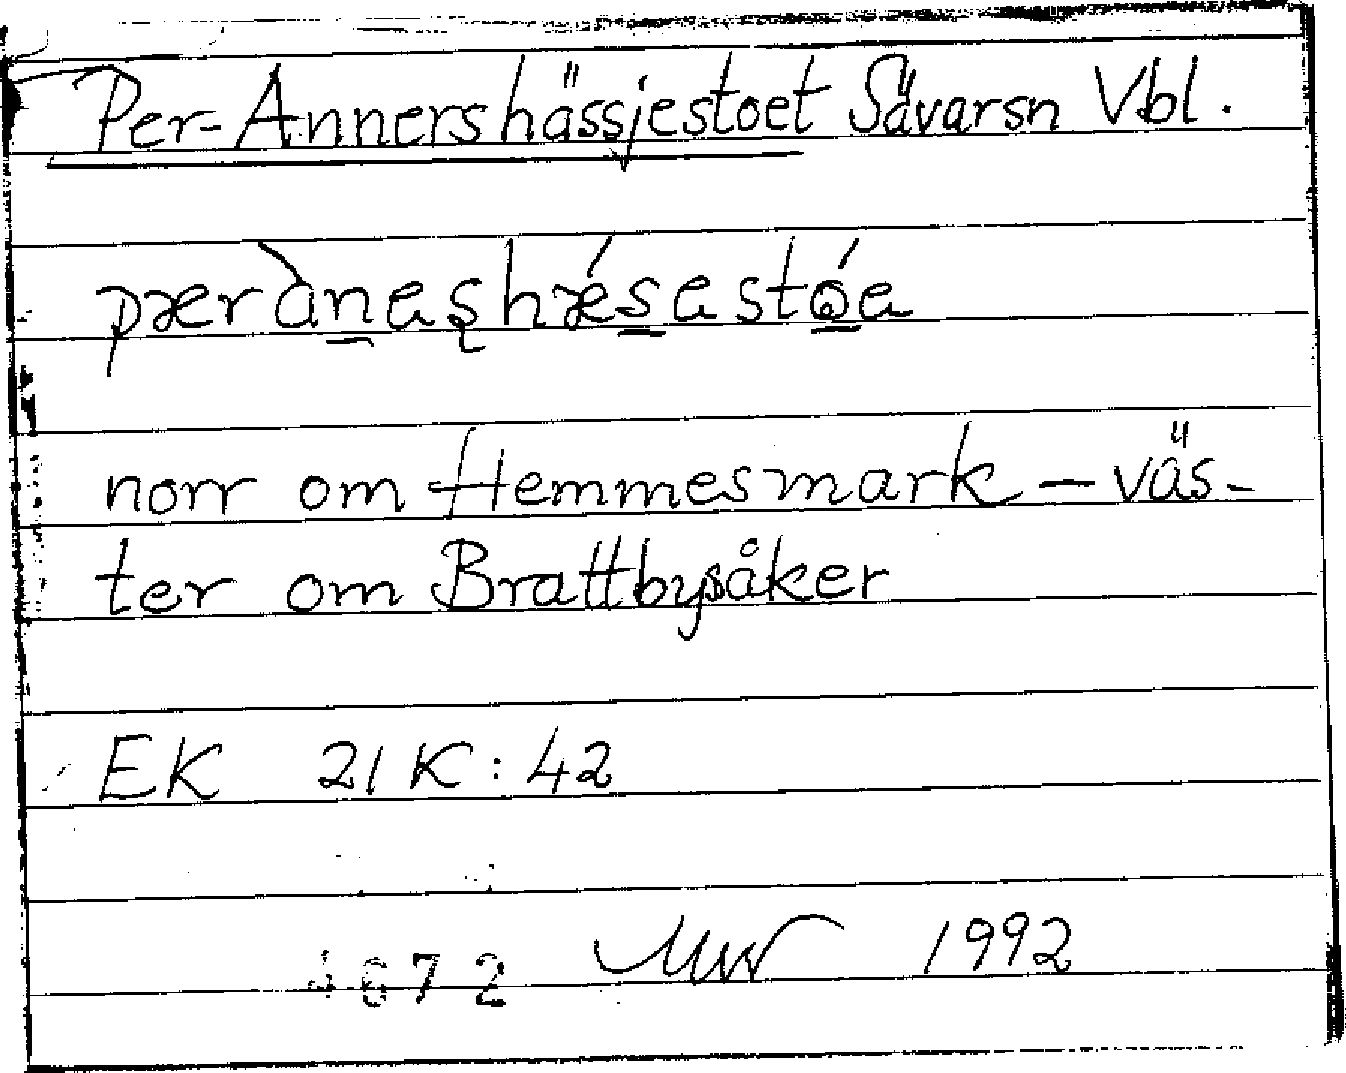 Per-Annershässjestoet Sävarsn Vbl.
pærànaʂhǽsastóa
norr om Hemmesmark – väs-
ter om Brattbysåker
EK 21K:42
1992